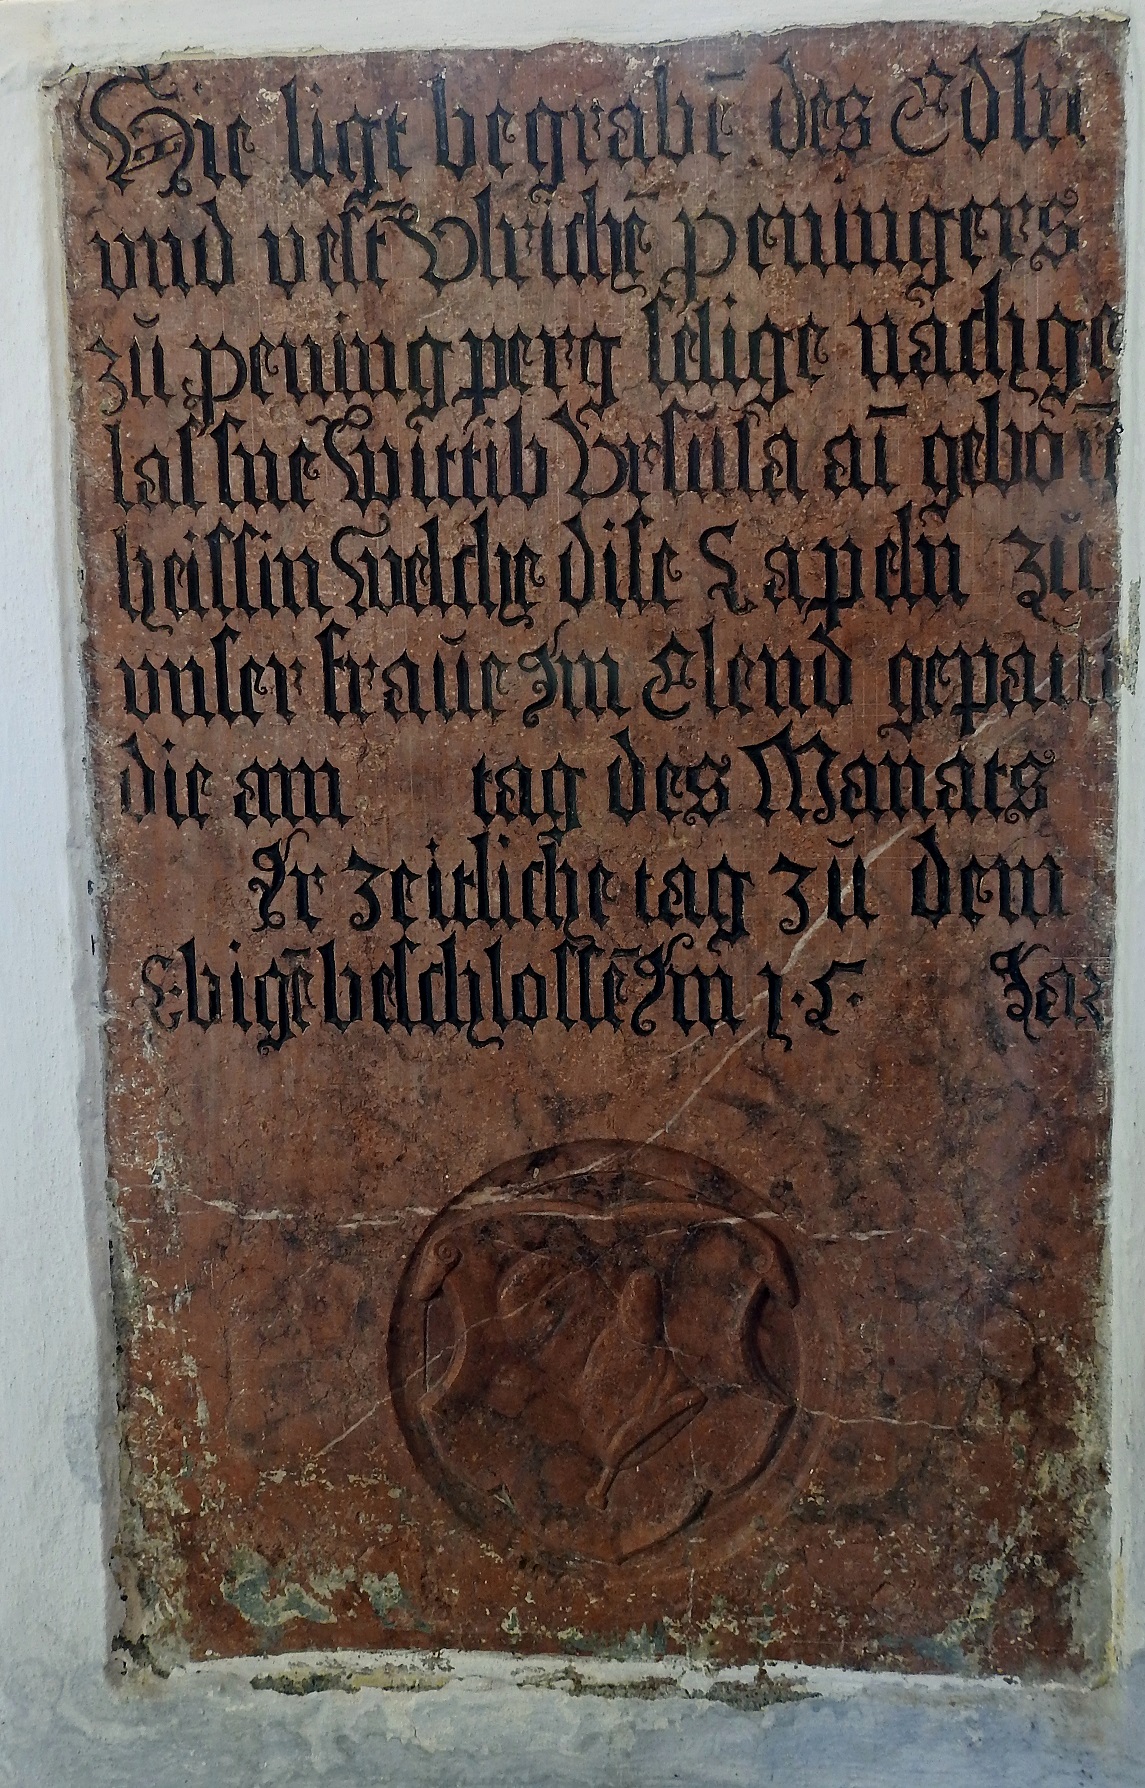 Hie ligt begrabē des Edln
vnd vest Vlrichē peningers
zů peningperg selige nachge
lassne Wittib Vrsula ain geborñ
heissin welche dise Capeln zů
vnser fraůe Im Elend gepaut
die am tag des Manats
Ir zeitliche tag zů dem
Ebigē beschlossē Im 1·5· Jar